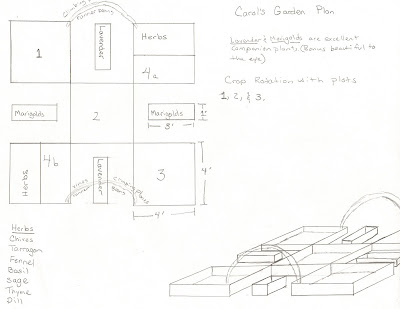 Carol's Garden Plan
Lavender & Marigolds are excellent
companion plants. (Bonus beautiful to
the eye)
Crop Rotation with plots
1, 2, & 3.
Climbing
1
Lavender
Herbs
4a
Marigolds
2
Marigolds
1'
3'
Herbs
4b
Vines
Lavender
Climbing Plants
3
4'
4'
Herbs
Chives
Tarragon
Fennel
Basil
Sage
Thyme
Dill